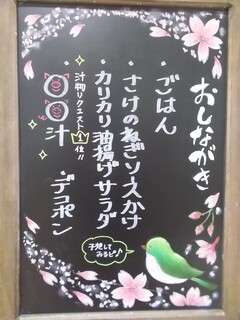 おしながき
・ごはん
・さけのねぎソースかけ
・カリカリ油揚げサラダ
汁物リクエスト1位!!
・○○汁
・デコポン
予想してみるピ♪